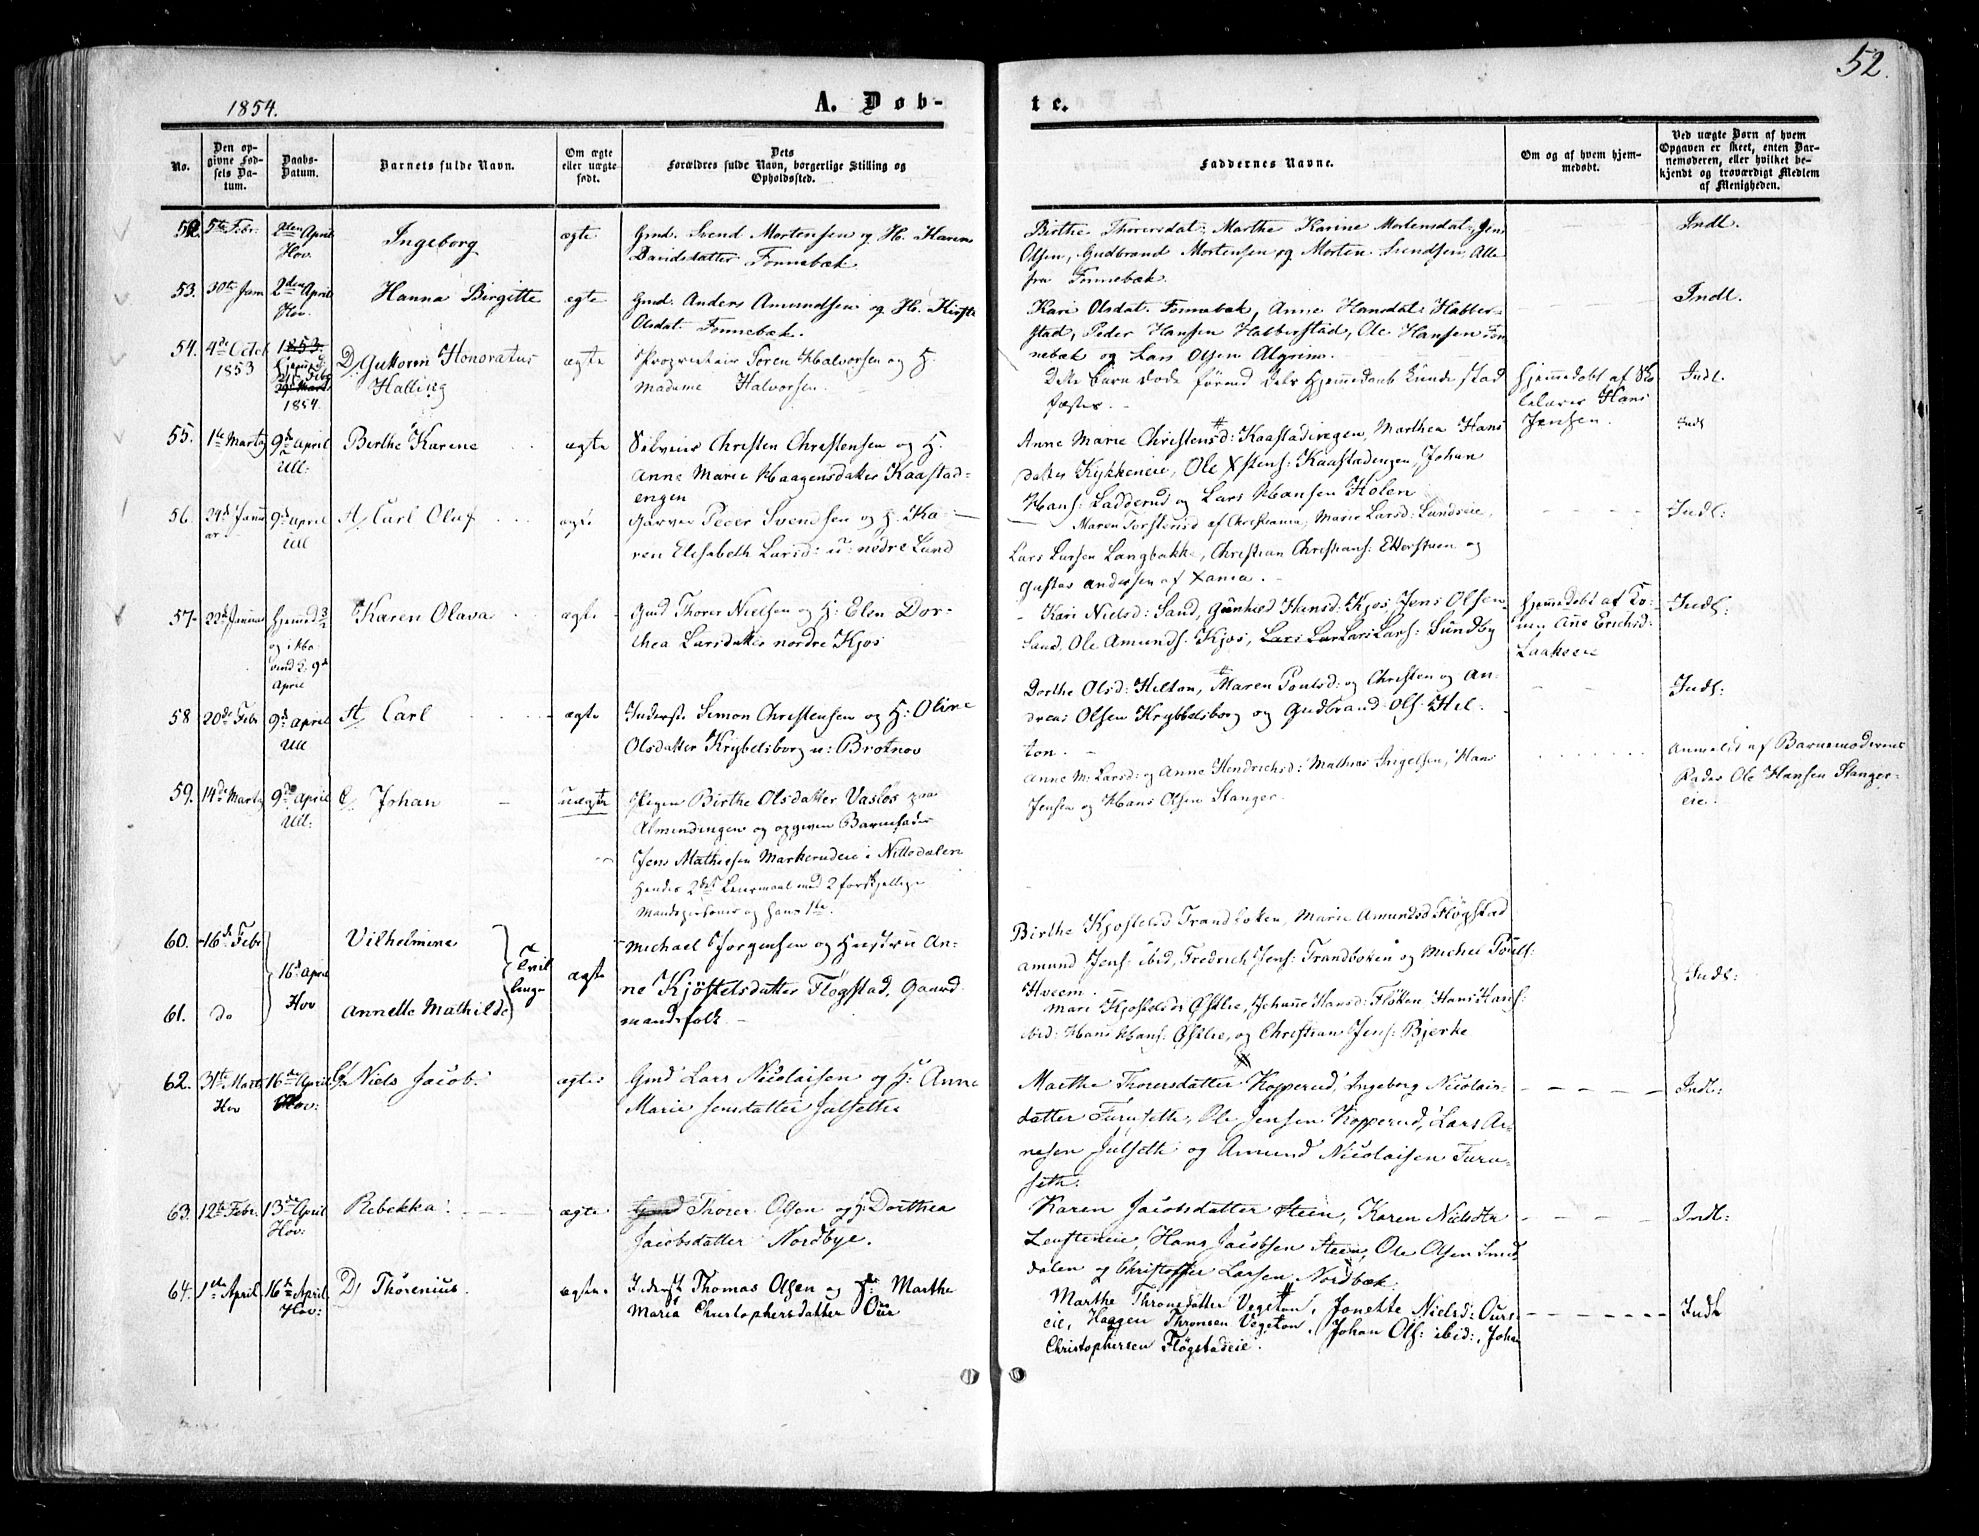 52.
1854.
A. Døb-
te.
No.
Den opgivne Fødsels Datum.
Daabs-Datum.
Barnets fulde Navn.
Om ægte eller uægte født.
Dets Forældres fulde Navn, borgerlige Stilling og Opholdssted.
Faddernes Navne.
Om og af hvem hjemmedøbt.
Ved uægte Børn af hvem Opgaven er skeet, enten Barnemoderen, eller hvilket bekjendt og troværdigt Medlem af Menigheden.
52. 5te Febr. 2den April Hov. Ingeborg ægte Gmd. Svend Mortensen og H. Karen
Davidsdatter Fonnebæk
Birthe Thorersdat. Marthe Karine Mortensdat, Jens
Olsen, Gudbrand Mortensen og Morten Svendsen, Alle
fra Fonnebæk.
Indl.
53. 30te Jan 2den April Hov. Hanna Birgitte ægte Gmd. Anders Amundsen og H. Kirsti
Olsdat. Fonnebæk.
Kari Olsdat. Fonnebæk, Anne Hansdat. Habber-
stad, Peder Hansen Habberstad, Ole Hansen Fon-
nebæk og Lars Olsen Algrim.
Indl.
54. 4de Octob 1853 1853. 1854. D, Guttorm Honoratus
Halling
ægte Proprietair Søren Halvorsen og H.
Madame Halvorsen.
Dette Barn døde førend dets Hjemmedaab kunde stad
fæstes.
Hjemmedøbt af Sko
lelærer Hans
Jensen.
Indl.
55. 1ste Marts 9de April Ull: Berthe Karene ægte Selveier Christen Christensen og H.
Anne Marie Haagensdatter Kaastad-
engen
Anne Marie Christensd: Kaastadengen, Marthea Hans
datter Kykkeneie, Ole Xstens: Kaastadengen, Johan
Hans: Ladderud og Lars Hansen Holen
Indl
56. 24de Janu
ar. 9de April Ull A, Carl Oluf ægte Garver Peder Svendsen og H. Ka-
ren Elisabeth Larsd: u: nødre Lund
Maren Torstensd af Christiania, Marie Larsd: Lundeie,
Lars Larsen Langbakke, Christian Christians: Etterstuen og
Gustav Andersen af Xania.
Indl:
57. 22de Januar Hjemmed 3/2
og i Ho
9de
April
Karen Olava ægte Gmd Thorer Nielsen og H: Elen Dor-
thea Larsdatter nordre Kjos
Kari Nielsd: Sand, Gunhild Hansd: Kjos, Jens Olsen
Sand, Ole Amunds: Kjos, Lars Lars: Sundby
Hjemmedøbt af Ko-
nen Anne Erichsd:
Laakeeie
Indl:
58 20de Febr 9de April Ull A, Carl ægte Inderst Simon Christensen og H: Oline
Olsdatter Krybelsborg u: Brotnov
Dorthe Olsd: Hilton, Maren Poulsd: og Christen og An-
dreas Olsen Krybbelsborg og Gudbrand Ols: Hil-
ton.
Indl:
59. 14de Marts 9de April Ull: C, Johan uægte Pigen Birthe Olsdatter Vaslos paa
Almindingen og opgiven Barnefader
Jens Mathisen Markerudeie i Nittedalen
Hendes 2det Leiermaal med 2 forskjellige
Mandspersoner og hans 1ste.
Anne M: Larsd: og Anne Hendrichsd: Mathias Ingelsen, Hans
Jensen og Hans Olsen Stanger.
Anmeldt af Barnemoderens
Fader Ole Hansen Stanger-
eie.
60. 16de Febr Vilhelmine
16de April
Hov
Tvil
linger
ægte
Michael Jørgensen og Hustru An-
ne Kjøstelsdatter Fløgstad, Gaard-
mandsfolk
61. do Annette Mathilde
Birthe Kjøstelsd Trandboken, Marie Amundsd Fløgstad
Amund Jens: ibid, Fredrich Jens: Trandboken og Michel Pouls:
Hveem.
Mari Kjøstelsd: Østlie, Johanne Hansd: Fløken Hans Hans:
ibid: Hans Hans: Østlie, og Christian Jens: Bjerke
Indl:
62. 31te Marts
Hov 16de April Hov: C, Niels Jacob. ægte Gmd Lars Nicolaisen og H: Anne
Marie Jensdatter Julsethe
Marthe Thorersdatter Kopperud, Ingeborg Nicolais-
datter Furuseth, Ole Jensen Kopperud, Lars Ar-
nesen Julseth og Amund Nicolaisen Furu-
seth.
Indl:
63. 12te Febr. 13de April Hov: Rebekka. ægte Gmd Thorer Olsen og H: Dorthea
Jacobsdatter Nordbye.
Karen Jacobsdatter Steen, Karen Nielsdtr
Lensteneie, Hans Jacobsen Steen, Ole Olsen Smed
dalen og Christoffer Larsen Nordbæk.
Indl:
64. 1ste April 16de April Hov: D, Thorenius. ægte. Inderst Thomas Olsen og H: Marthe
Maria Christophersdatter Our
Marthe Thronsdatter Vegston, Jonette Nielsd: Ours-
eie, Haagen Thronsen Vegston, Johan Ols: ibid:, Johan
Christophersen Fløgstadeie.
Indl